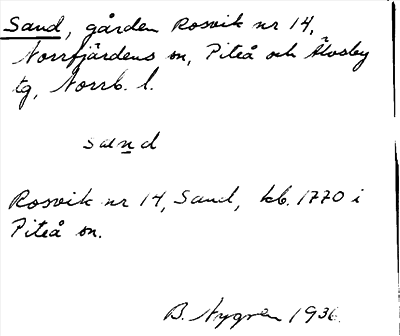 Sand, gården Rosvik nr 14,
Norrfjärdens sn, Piteå och Älvsby
tg, Norrb. l.
sand
Rosvik nr 14, Sand, kb. 1770 i
Piteå sn.
B. Nygren 1936.